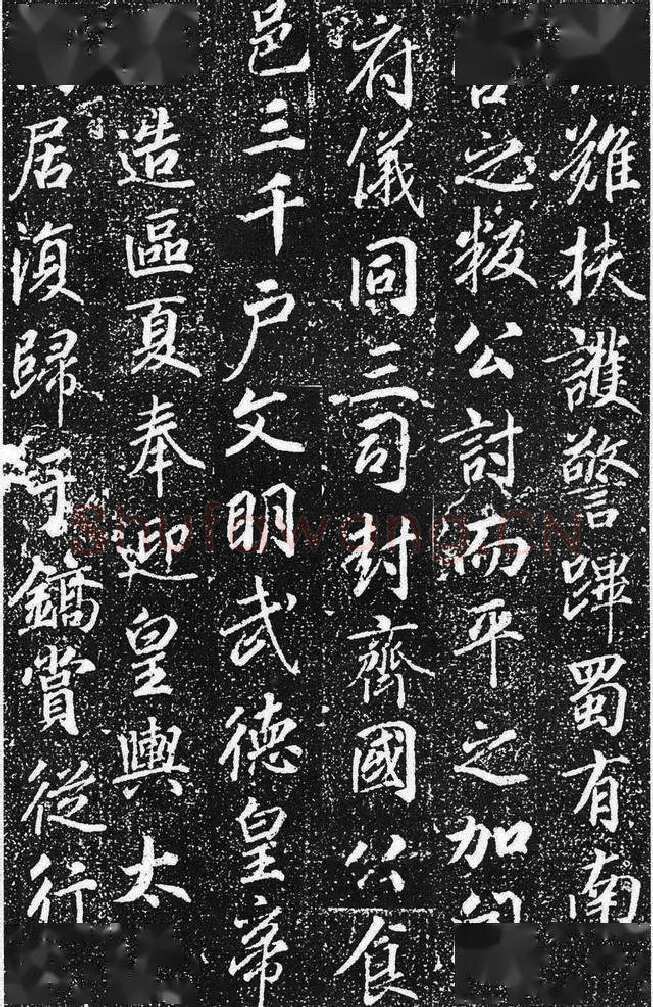 難扶護警蹕蜀有南
之叛公討而平之加
府儀同三司封齊國公食
邑三千户文明武德皇帝
造區夏奉迎皇輿太
居復歸于鎬賞從行
Shufawang.CN